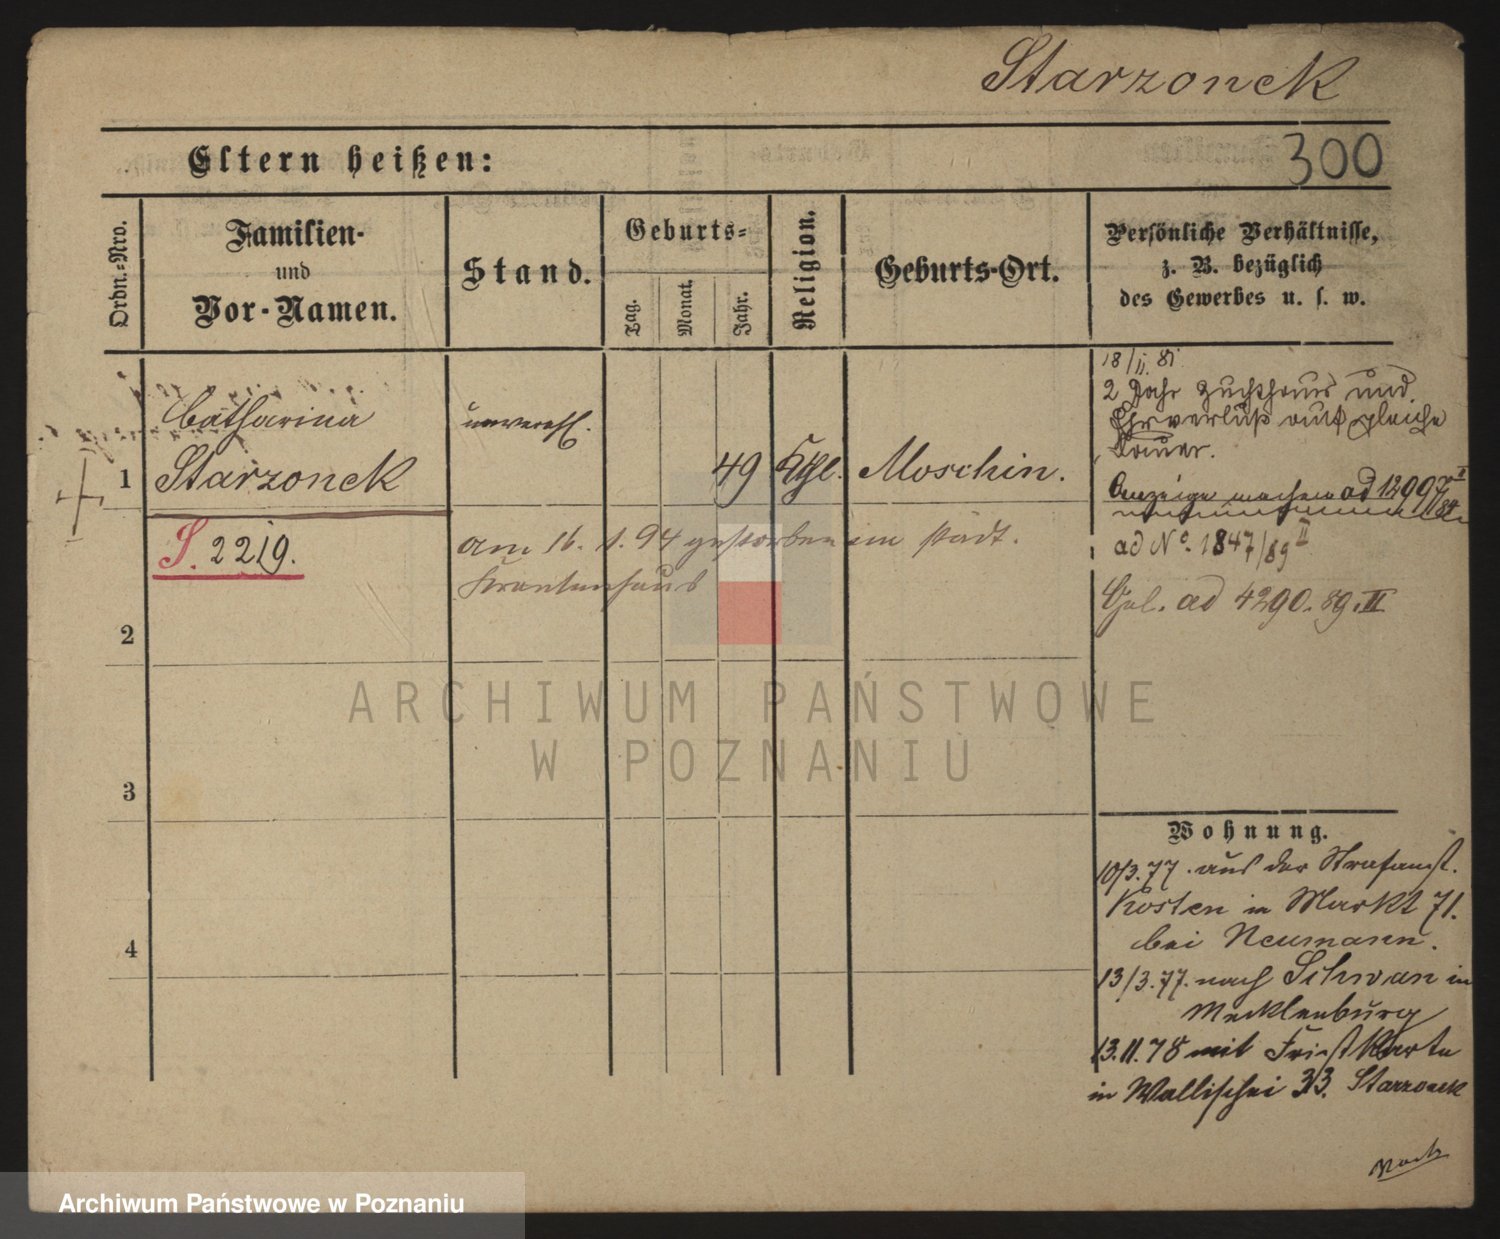 Starzonek
300
Eltern heißen:
Ordn.-Nro.
Familien-
und
Vor-Namen.
Stand.
Geburts-
Tag.
Monat.
Jahr.
Religion.
Geburts-Ort.
Persönliche Verhältnisse,
z. B. bezüglich
des Gewerbes u. s. w.
1
Catharina
Starzonek
unverehl.
49
Kthl.
Moschin.
18/II. 81
2 Jahr Zuchthaus und
Ehrverlust auf gleiche
Dauer.
Anzeige machen ad 1299
ad No. 1847/89 II
Gel. ad 4290. 89. II
S. 2219.
am 16. 1. 94 gestorben im städt.
Krankenhaus
2
3
4
Wohnung.
10/3. 77. aus der Strafanst.
Kosten in Markt 71.
bei Neumann.
13/3. 77. nach Schwan in
Mecklenburg
13. 11. 78 mit Frist Karte
in Wallischei 33. Starzonek
ARCHIWUM PAŃSTWOWE
W POZNANIU
Archiwum Państwowe w Poznaniu